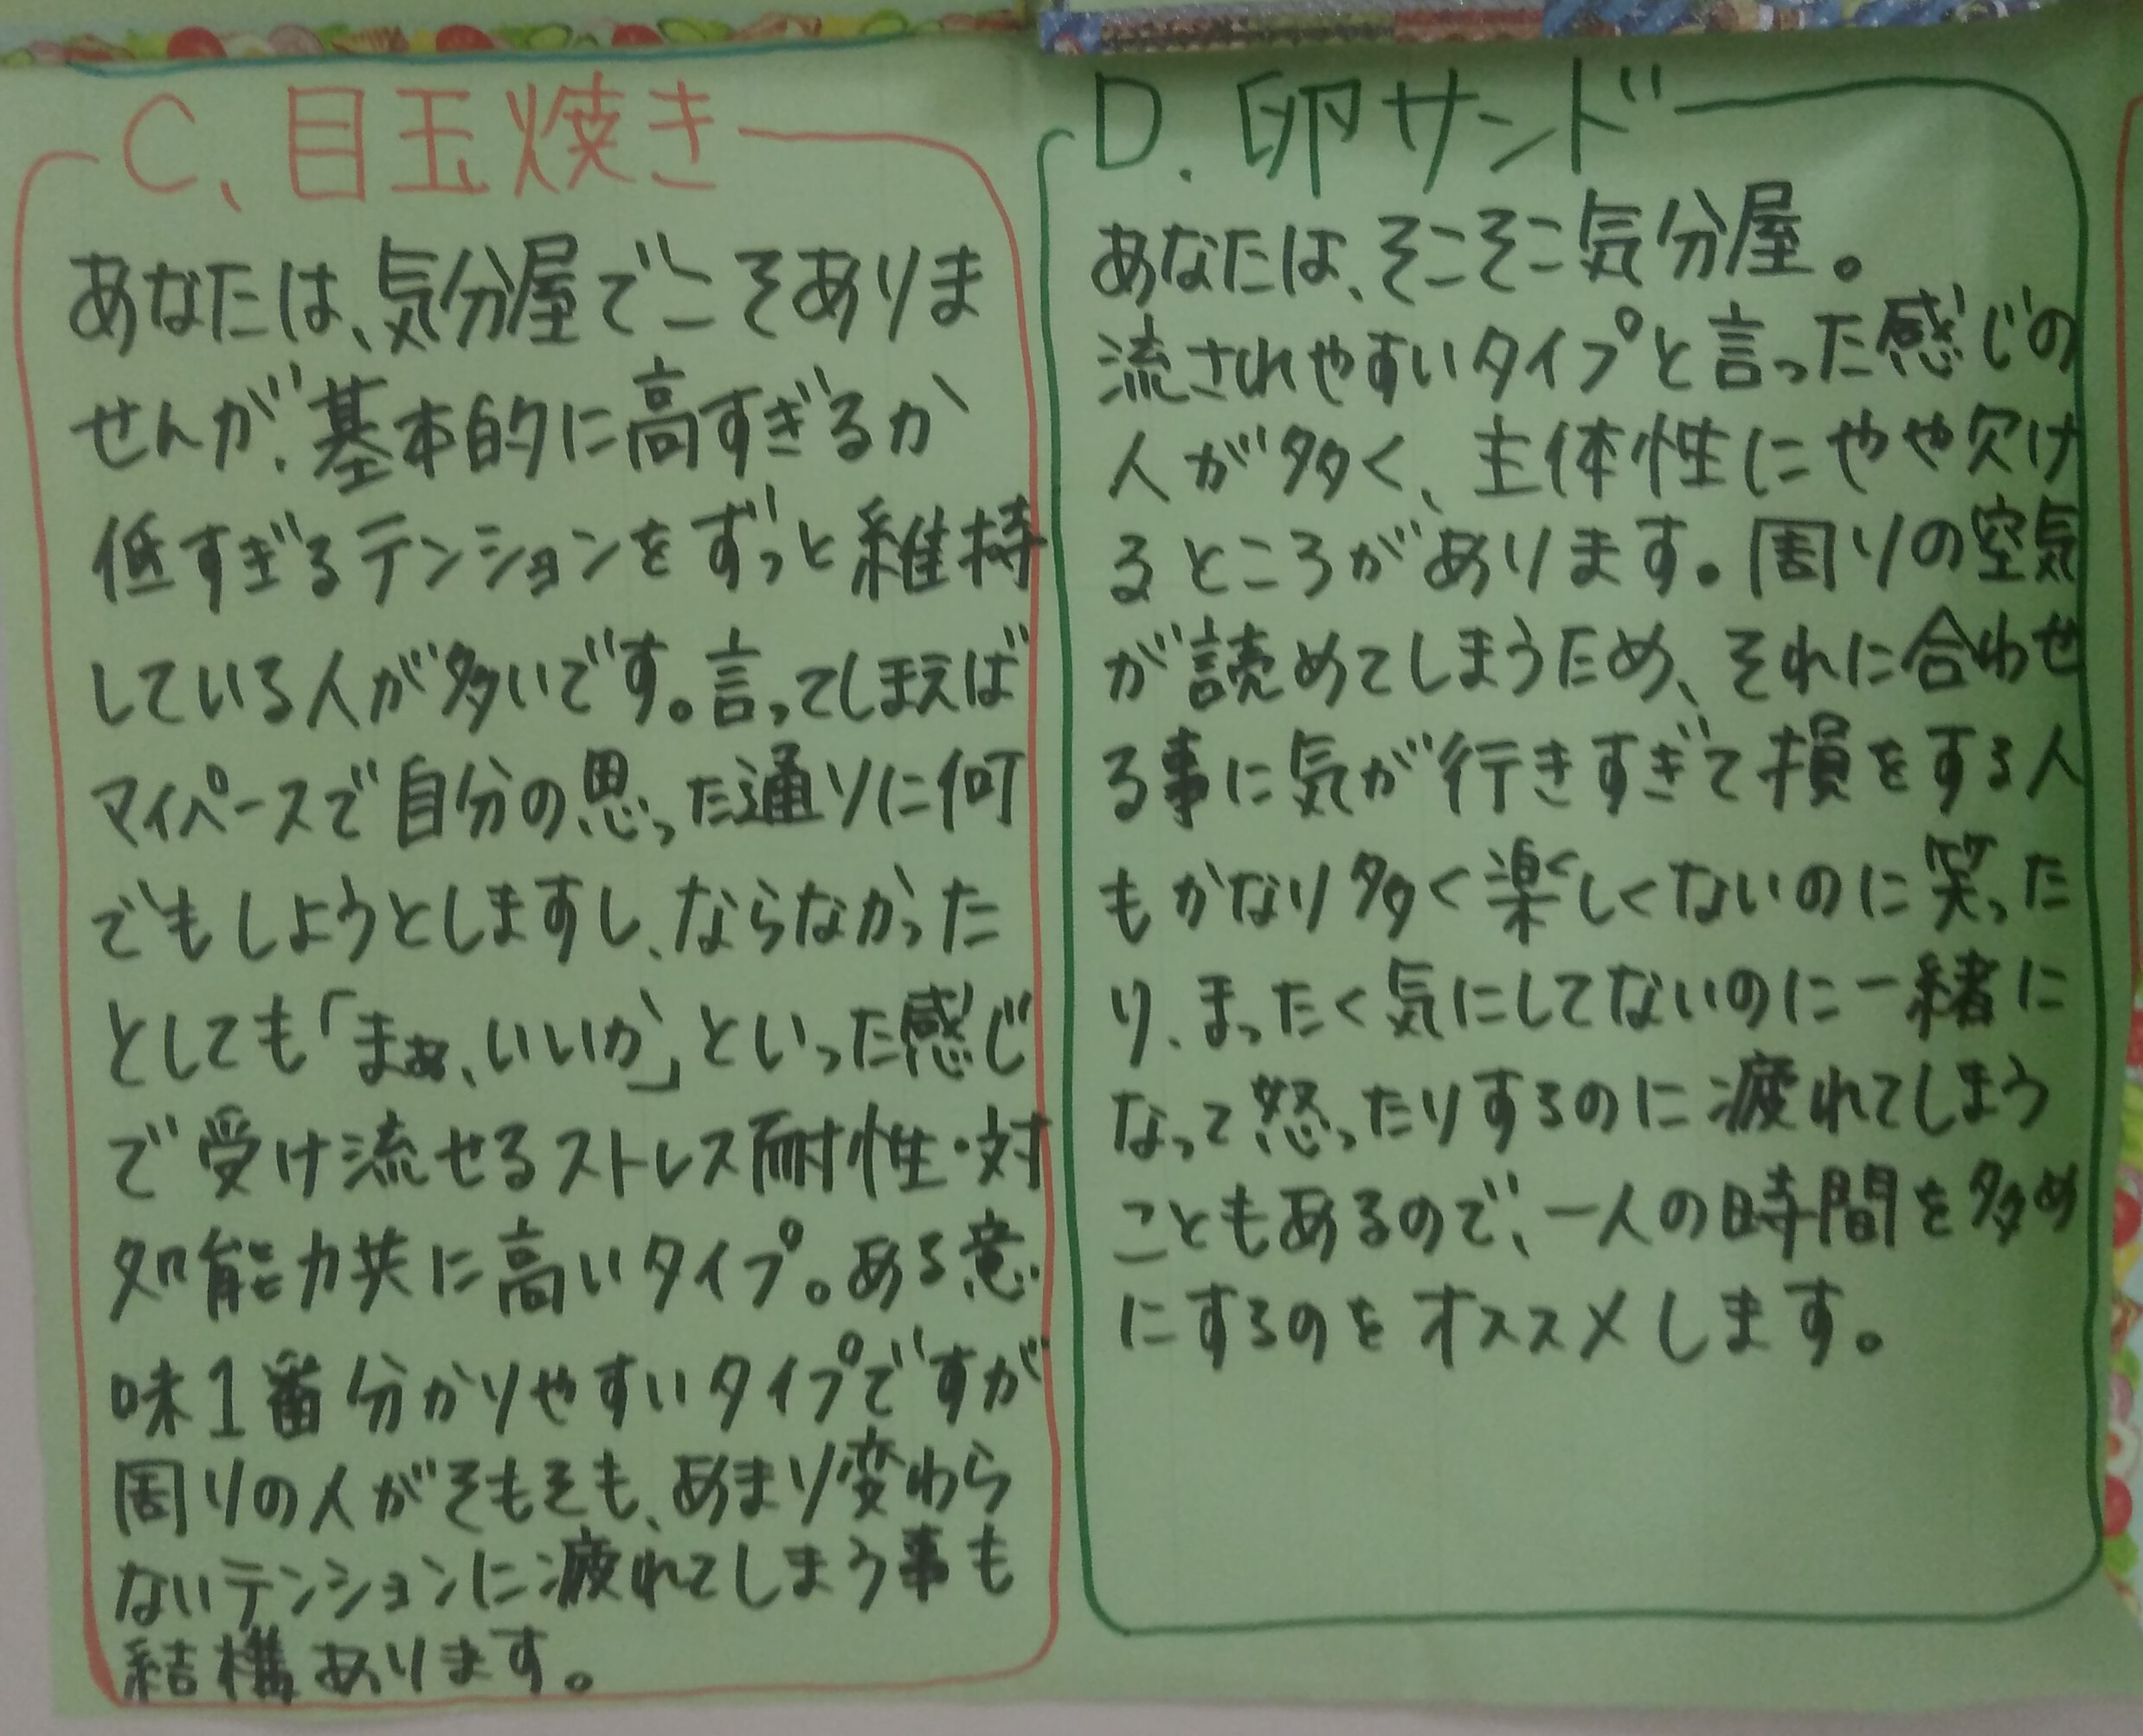 C、目玉焼き
あなたは、気分屋でこそありま
せんが、基本的に高すぎるか
低すぎるテンションをずっと維持
している人が多いです。言ってしまえば
マイペースで自分の思った通りに何
でもしようとしますし、ならなかった
としても「まぁ、いいか」といった感じ
で受け流せるストレス耐性・対
処能力共に高いタイプ。ある意
味1番分かりやすいタイプですが
周りの人がそもそも、あまり変わら
ないテンションに疲れてしまう事も
結構あります。
D. 卵サンド
あなたは、そこそこ気分屋。
流されやすいタイプと言った感じの
人が多く、主体性にやや欠け
るところがあります。周りの空気
が読めてしまうため、それに合わせ
る事に気が行きすぎて損をする人
もかなり多く楽しくないのに笑った
り、まったく気にしてないのに一緒に
なって怒ったりするのに疲れてしまう
こともあるので、一人の時間を多め
にするのをオススメします。